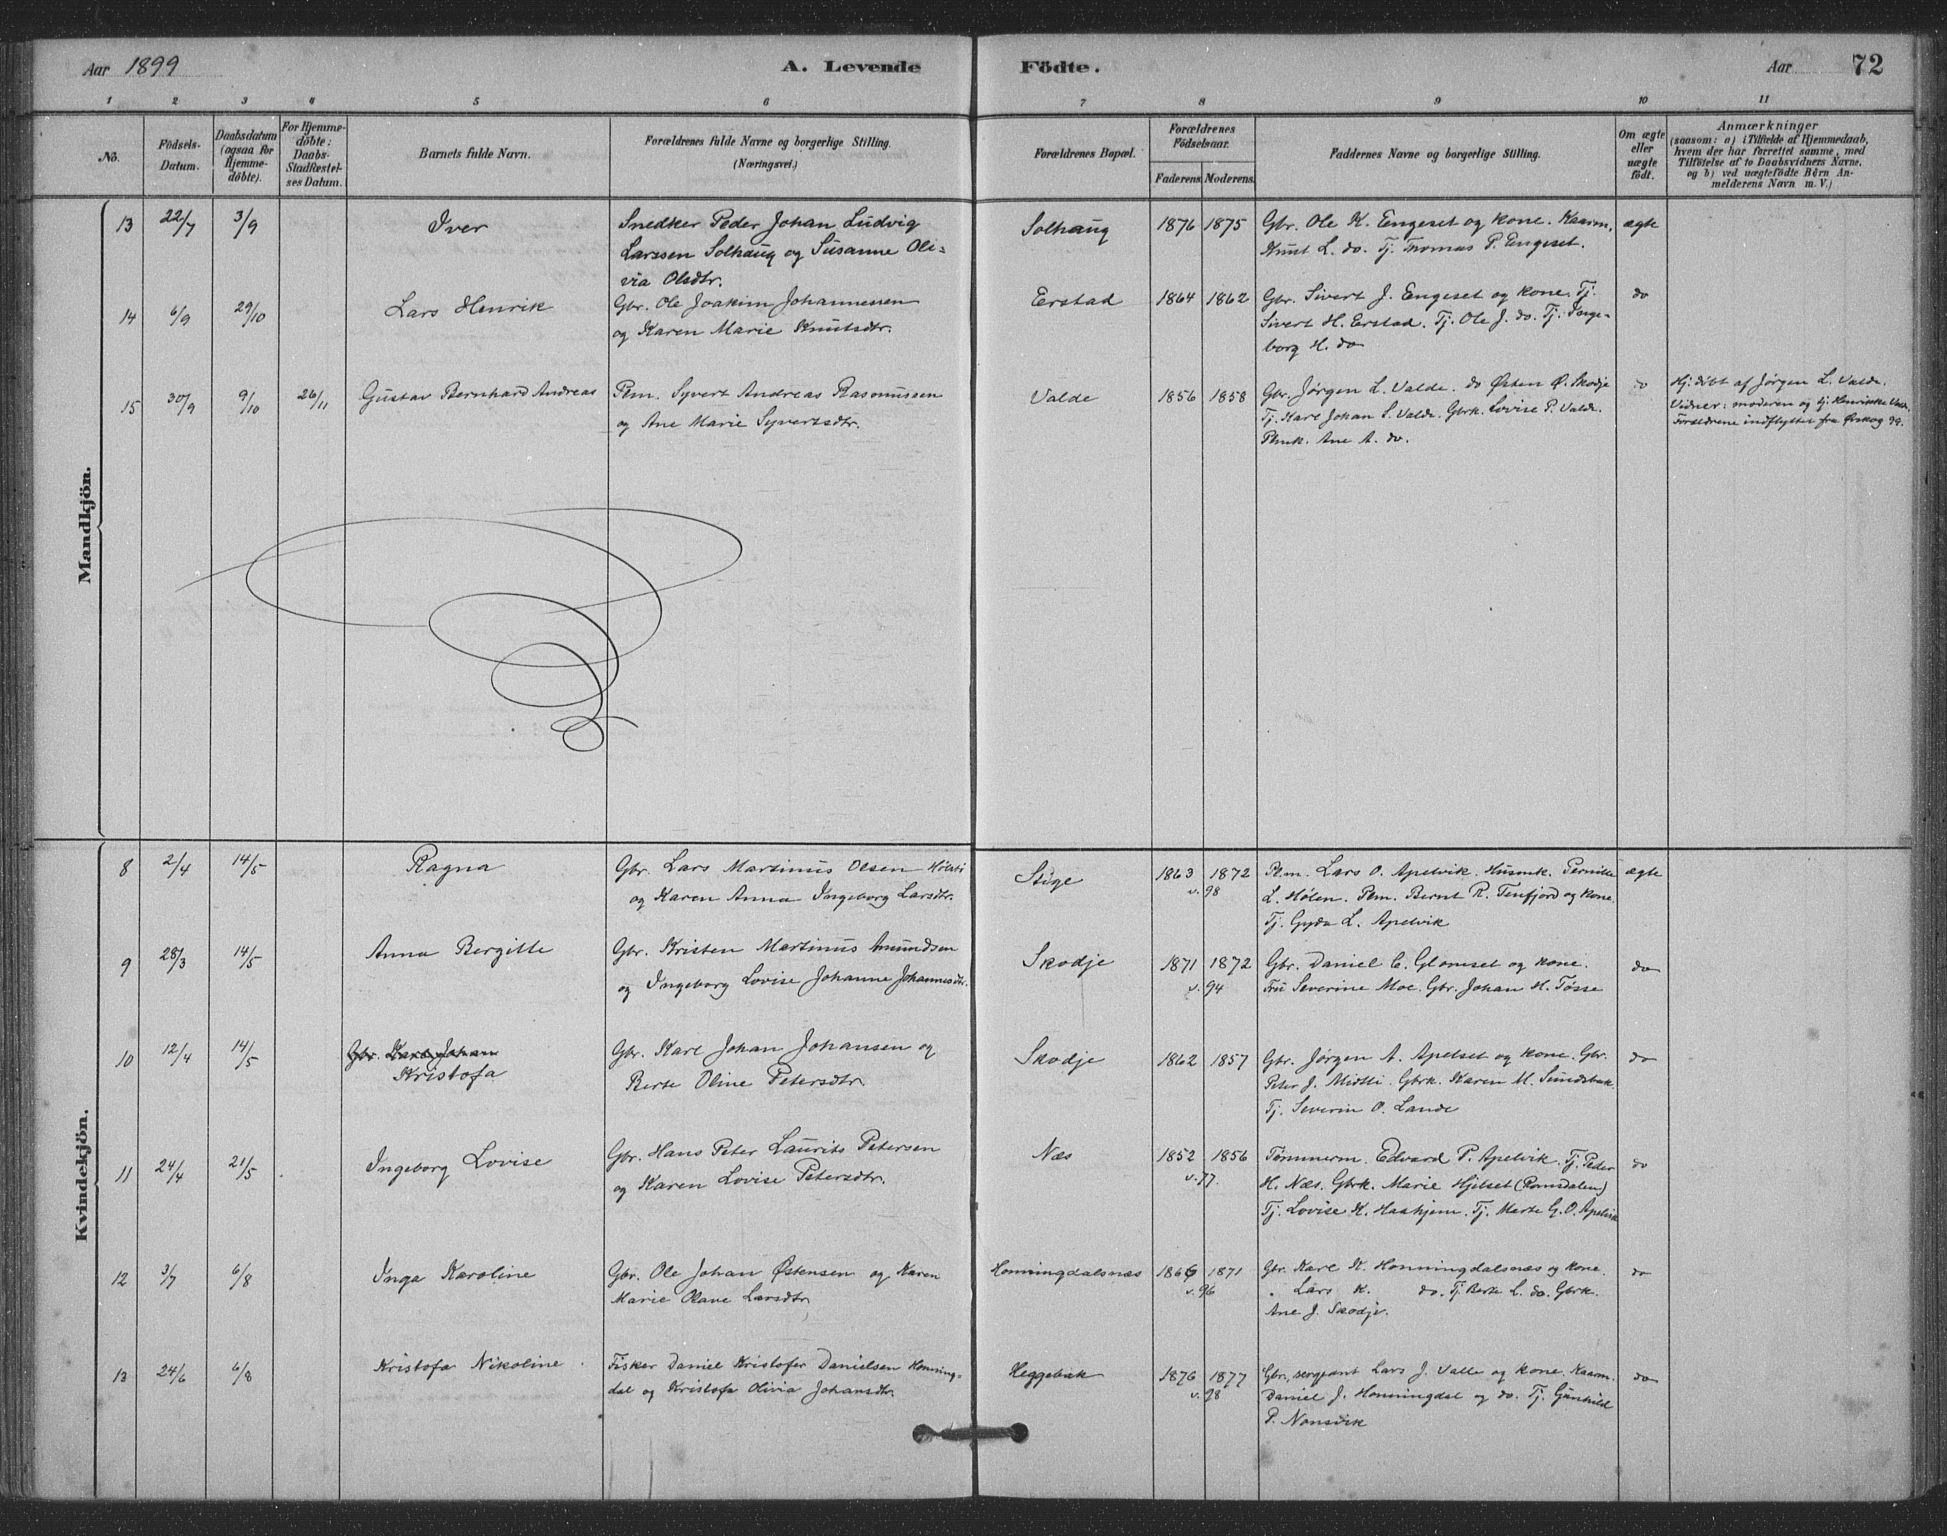 Aar 1899 A. Levende Födte. Aar 72
1 2 3 4 5 6 7 8 9 10 11
No.
Födsels-
Datum.
Daabsdatum
(ogsaa for
Hjemme-
döbte).
For Hjemme-
döbte:
Daabs-
Stadfæstel-
ses Datum.
Barnets fulde Navn.
Forældrenes fulde Navne og borgerlige Stilling.
(Næringsvei.)
Forældrenes Bopæl.
Forældrenes
Födselsaar.
Faderens. Moderens.
Faddernes Navne og borgerlige Stilling.
Om ægte
eller
uægte
födt.
Anmærkninger
(saasom: a) i Tilfælde af Hjemmedaab,
hvem der har forrettet samme, med
Tilföielse af to Daabsvidners Navne,
og b) ved uægtefödte Börn An-
melderens Navn m. V.)
Mandkjön.
13 22/7 3/9 Iver Snedker Peder Johan Ludvig Solhaug 1876 1875 Gbr. Ole K. Engeset og kone. Kaarm. ægte
Larssen Solhaug og Susanne Oli- Knut L. do. Tj. Thomas P. Engeset.
via Olsdtr.
14 6/9 29/10 Lars Henrik Gbr. Ole Joakim Johannessen Erstad 1864 1862 Gbr. Sivert J. Engeset og kone. Tj. do
og Karen Marie Knutsdtr. Sivert H. Erstad. Tj. Ole J. do. Tj. Inge-
borg H. do
15 30/9 9/10 26/11 Gustav Bernhard Andreas Pem. Syvert Andreas Rasmussen Valde 1856 1858 Gbr. Jørgen L. Valde. do Østen Ø. Skodje do Hj. døbt af Jørgen L. Valde.
og Ane Marie Syvertsdtr. Tj. Karl Johan S. Valde. Gbrk. Lovise P. Valde. Vidner: moderen og tj. Henrikke Valde.
Pemk. Ane A. do. Forældrene indflyttet fra Ørskog 99.
Kvindekjön.
8 2/4 14/5 Ragna Gbr. Lars Martinus Olsen Stige 1863 1872 Pem. Lars O. Apelvik. Husmk. Pernille ægte
og Karen Anna Ingeborg Larsdtr. v. 98 L. Hølen. Pem. Bernt R. Tenfjord og kone.
Tj. Gyda L. Apelvik
9 28/3 14/5 Anna Bergitte Gbr. Kristen Martinus Amundsen Skodje 1871 1872 Gbr. Daniel C. Glomset og kone. do
og Ingeborg Lovise Johanne Johannesdtr. v. 94 Fru Severine Moe. Gbr. Johan H. Tøsse
10 12/4 14/5 Gbr. Karl Johan Gbr. Karl Johan Johansen og Skodje 1862 1857 Gbr. Jørgen A. Apelset og kone. Gbr. do
Kristofa Berte Oline Petersdtr. Peter J. Midtli. Gbrk. Karen M. Sundsbak
Tj. Severin O. Lande
11 24/4 21/5 Ingeborg Lovise Gbr. Hans Peter Laurits Petersen Næs 1852 1856 Tømmerm. Edvard P. Apelvik. Tj. Peder do
og Karen Lovise Petersdtr. v. 77. H. Næs. Gbrk. Marie Hjelset (Romsdalen)
Tj. Lovise K. Haahjem. Tj. Marte G. O. Apelvik
12 3/7 6/8 Inga Karoline Gbr. Ole Johan Østensen og Karen Honningdalsnæs 1866 1871 Gbr. Karl K. Honningdalsnæs og kone. do
Marie Olave Larsdtr. v. 96 " Lars K. do. Tj. Berte L. do. Gbrk.
Ane J. Skodje.
13 24/6 6/8 Kristofa Nikoline Fisker Daniel Kristofer Danielsen Honning- Heggebak 1876 1877 Gbr., sergeant Lars J. Valle og kone. Kaarm. do
dal og Kristofa Olivia Johansdtr. v. 98 Daniel J. Honningdal og do. Tj. Gunhild
P. Nonsvik